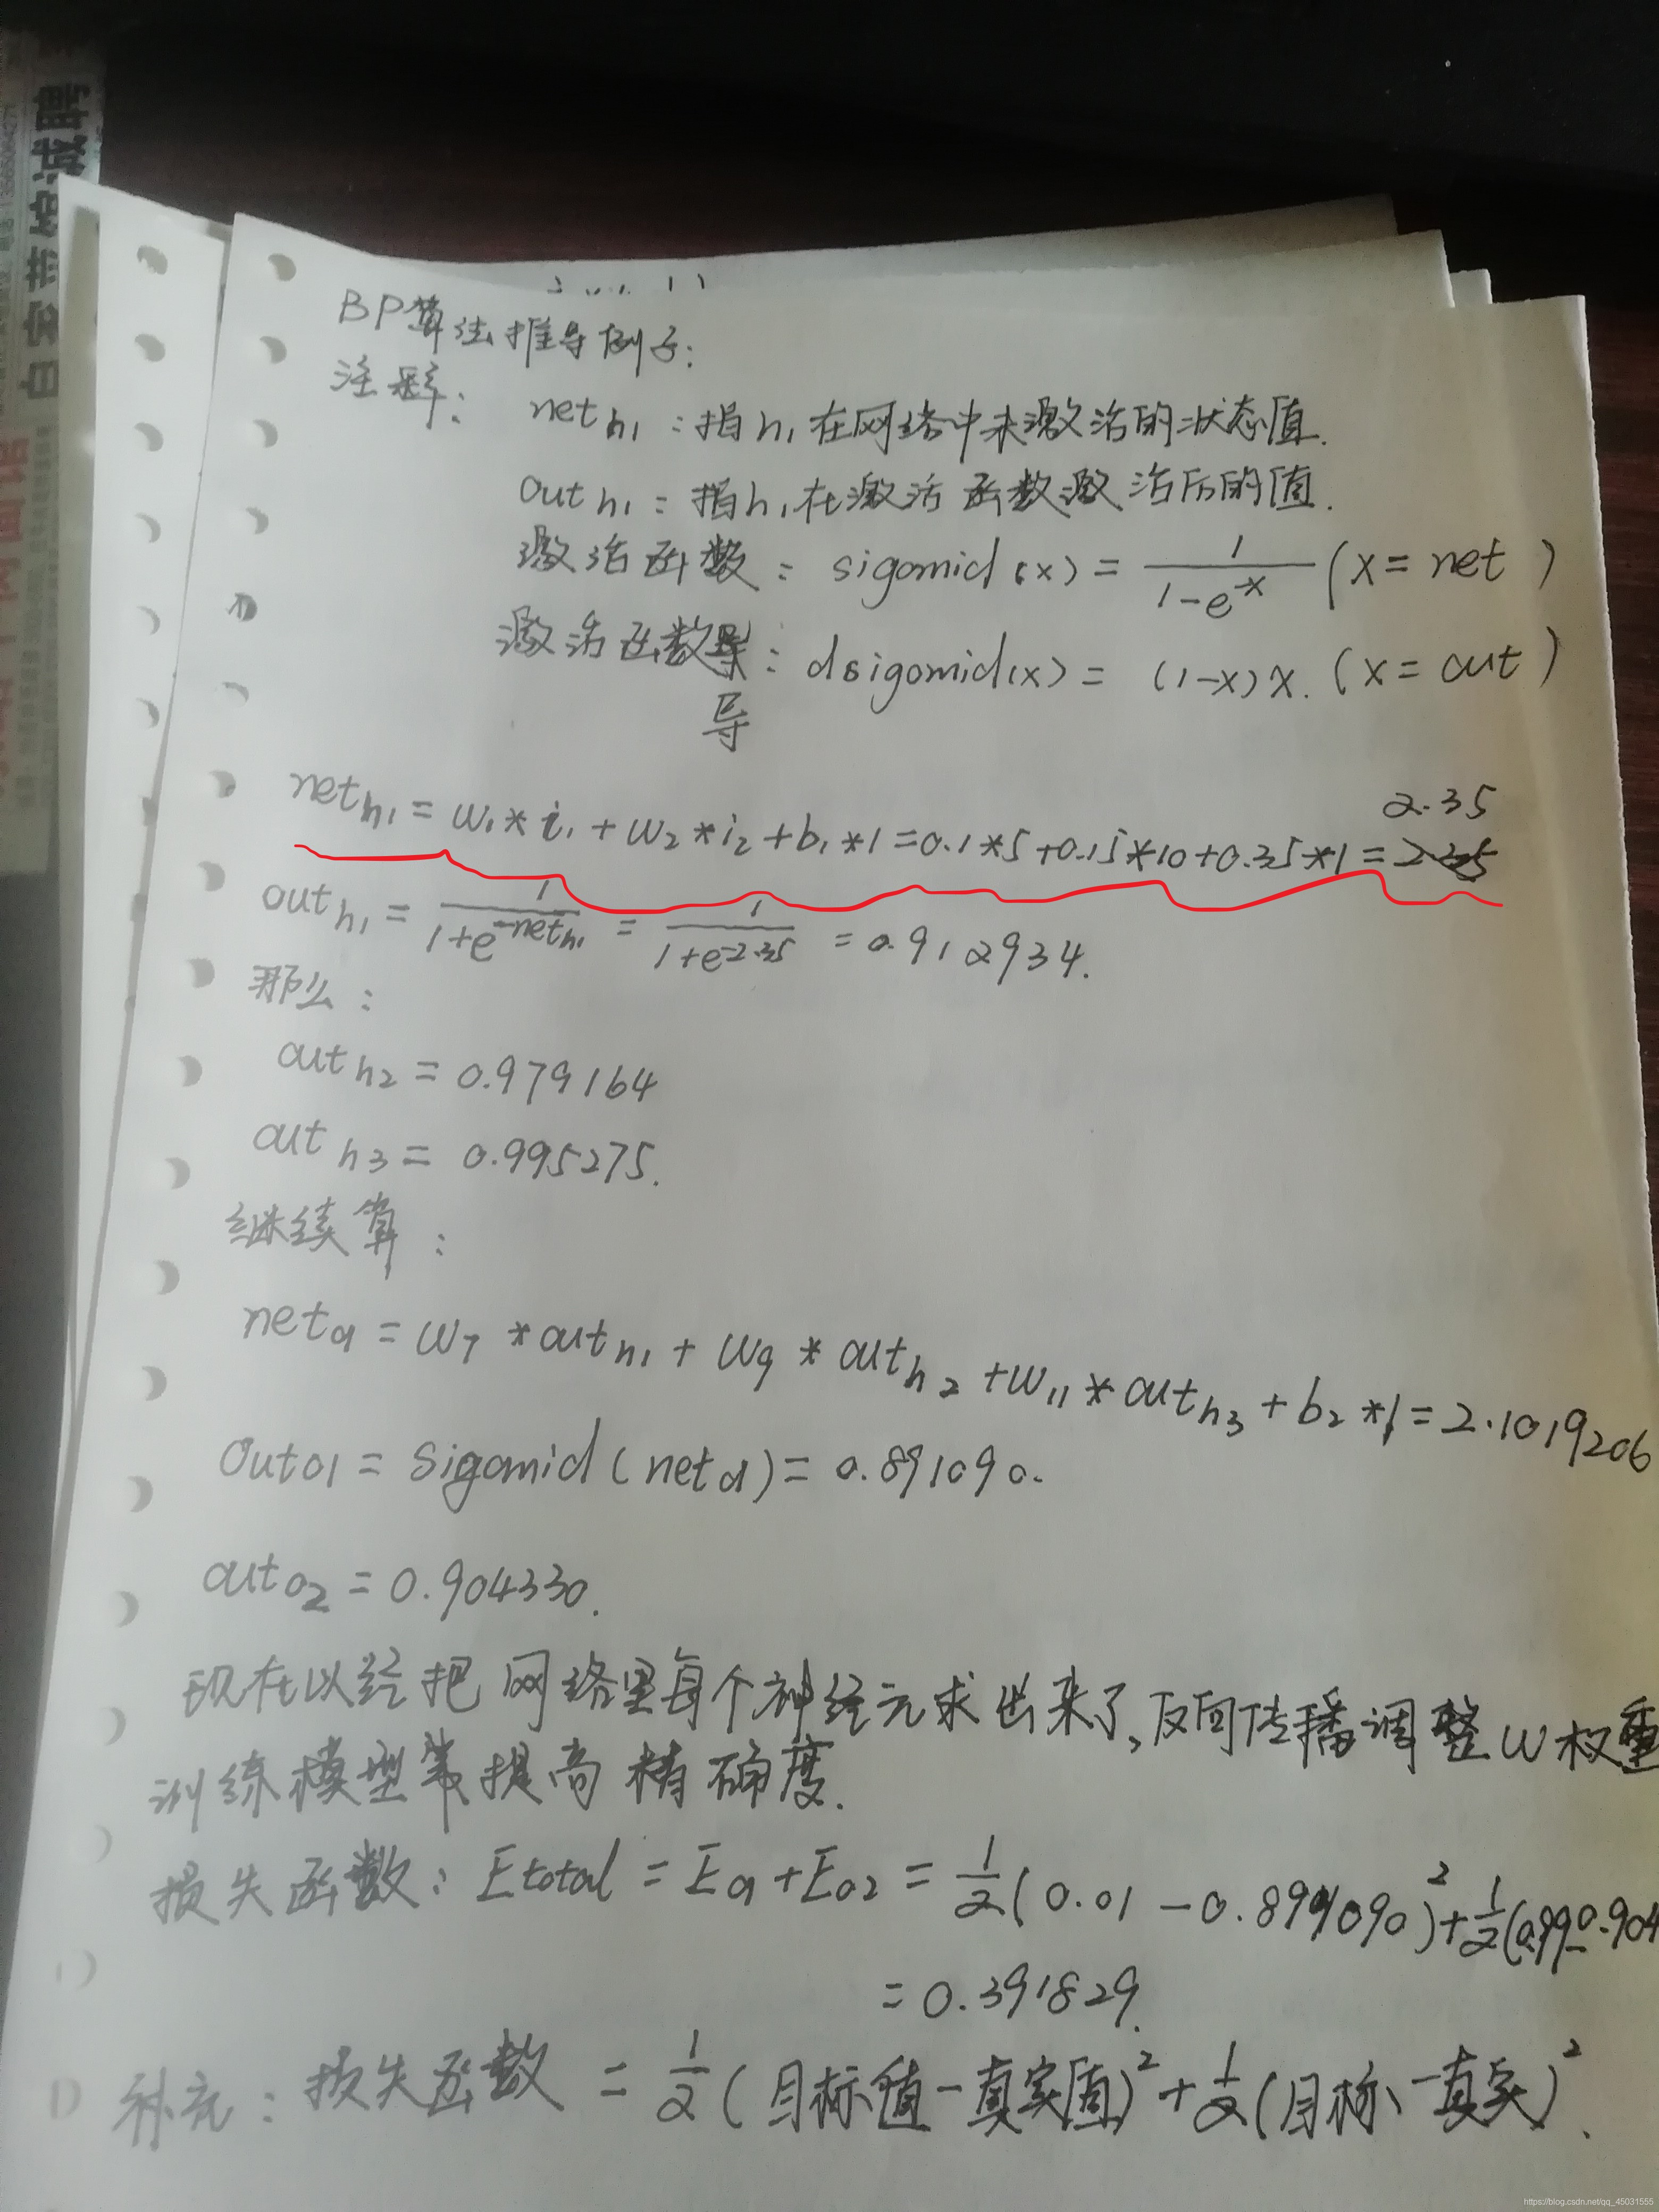 BP算法推导例子:
注释: net h1:指h1在网络中未激活的状态值.
out h1:指h1在激活函数激活后的值.
激活函数: sigomid(x) = 1/(1-e^-x) (x = net)
激活函数导: dsigomid(x) = (1-x)x. (x = out)
导
net h1 = w1*i1 + w2*i2 + b1*1 = 0.1*5+0.15*10+0.35*1 = 2.35
out h1 = 1/(1+e^-net h1) = 1/(1+e^-2.35) = 0.912934.
那么:
out h2 = 0.979164
out h3 = 0.995275.
继续算:
net o1 = w7 *out h1 + w9 * out h2 +w11* out h3 + b2 *1 = 2.1019206
Out o1 = sigomid(net o1) = 0.891090.
out o2 = 0.904330.
现在以经把网络里每个神经元求出来了,反向传播调整w权重
训练模型等提高精确度.
损失函数: Etotal = Eo1 + Eo2 = 1/2(0.01 - 0.891090)^2+1/2(0.99-0.904
= 0.391829.
补充: 损失函数 = 1/2(目标值-真实值)^2+1/2(目标、-真实)^2.
白家带
https://blog.csdn.net/qq_45031555